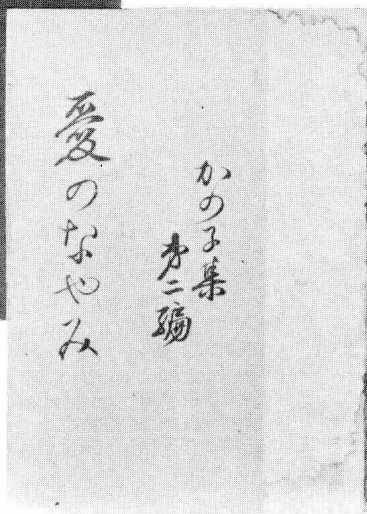 かの子集
第二編
愛のなやみ